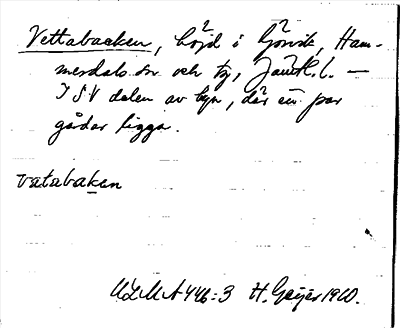 Vettabacken, höjd i Görvik, Ham-
merdals sn och tg, Jämtl. l. —
I SV delen av byn, där ett par
gårdar ligga.
vätabakεn
ULMA 446:3 H. Geijer 1910.